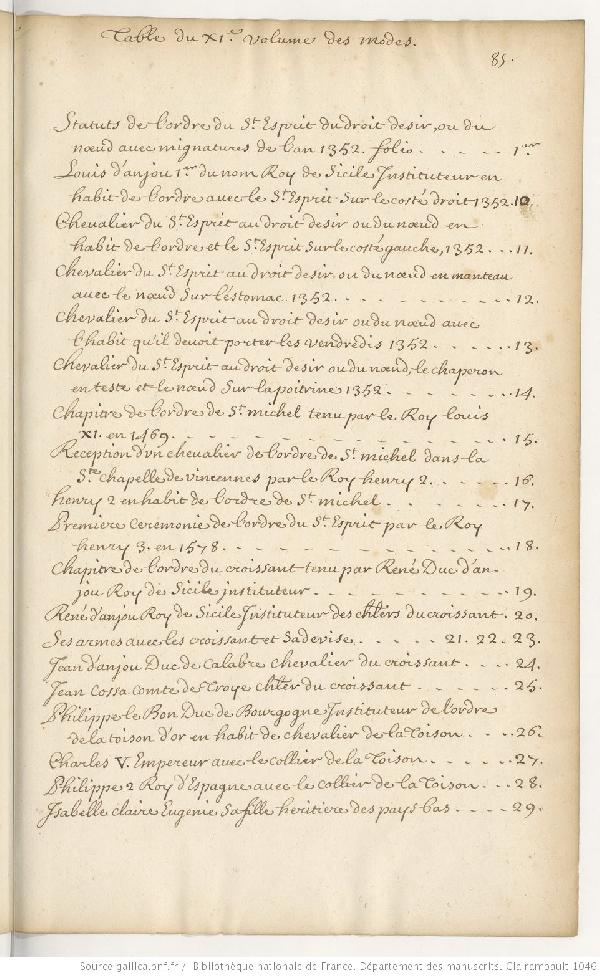 Table du XI.e Volume des modes.
85.
Statuts de l'ordre du St Esprit du droit desir, ou du
nœud avec mignatures de l'an 1352. folio . . . . . 1er
Louis d'anjou 1er du nom Roy de Sicile Instituteur en
habit de l'ordre avec le St Esprit sur le costé droit 1352. 10
Chevalier du St Esprit au droit desir ou du nœud en
habit de l'ordre et le St Esprit sur le costé gauche, 1352 . . . 11.
Chevalier du St Esprit au droit desir, ou du nœud en manteau
avec le nœud sur l'éstomac. 1352. . . . . . . . 12.
Chevalier du St Esprit au droit desir ou du nœud avec
l'habit qu'il devoit porter les vendredis 1352 . . . . . . 13.
Chevalier du St Esprit au droit desir ou du nœud, le chaperon
en teste et le nœud sur la poitrine 1352 . . . . . . 14.
Chapitre de l'ordre de St michel tenu par le Roy louis
XI. en 1469. . . . . . . . . . . . . . 15.
Reception d'vn chevalier de l'ordre de St michel dans la
Ste chapelle de vincennes par le Roy henry 2. . . . . 16.
henry 2 en habit de l'ordre de St michel . . . . . . 17.
Premiere Ceremonie de l'ordre du St Esprit par le Roy
henry 3. en 1578. . . . . . . . . . . . . 18.
Chapitre de l'ordre du croissant tenu par René Duc d'an-
jou Roy de Sicile instituteur . . . . . . . . . 19.
René d'anjou Roy de Sicile Instituteur des chlers du croissant. 20.
Ses armes avec les croissant et sa devise. . . . . . 21. 22. 23.
Jean d'anjou Duc de Calabre chevalier du croissant . . . . 24.
Jean Cossa Comte de Troye chler du croissant . . . . . 25.
Philippe le Bon Duc de Bourgogne Instituteur de l'ordre
de la toison d'or en habit de chevalier de la Toison. . . . 26.
Charles V. Empereur avec le collier de la Toison. . . . . 27.
Philippe 2 Roy d'Espagne avec le collier de la Toison. . . 28.
Isabelle claire Eugenie sa fille heritiere des pays bas . . . . 29.
Source gallica.bnf.fr / Bibliothèque nationale de France. Département des manuscrits. Clairambault 1046